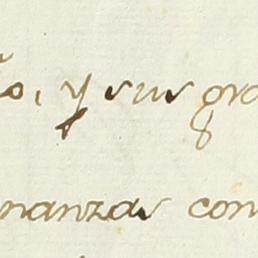 o, y sus gra
nanzas con